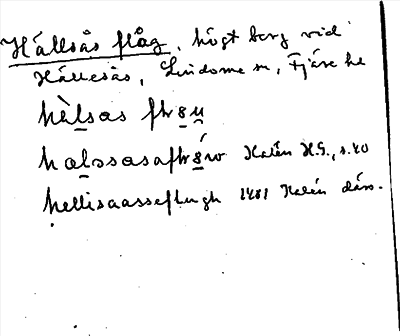 Hällsås flåg, högt berg vid
Hällesås, Lindome sn, Fjäre hd
hàlsas
halssasa Kalén H.S., s. 40
hellisaasseflugh 1481 Kalén därs.